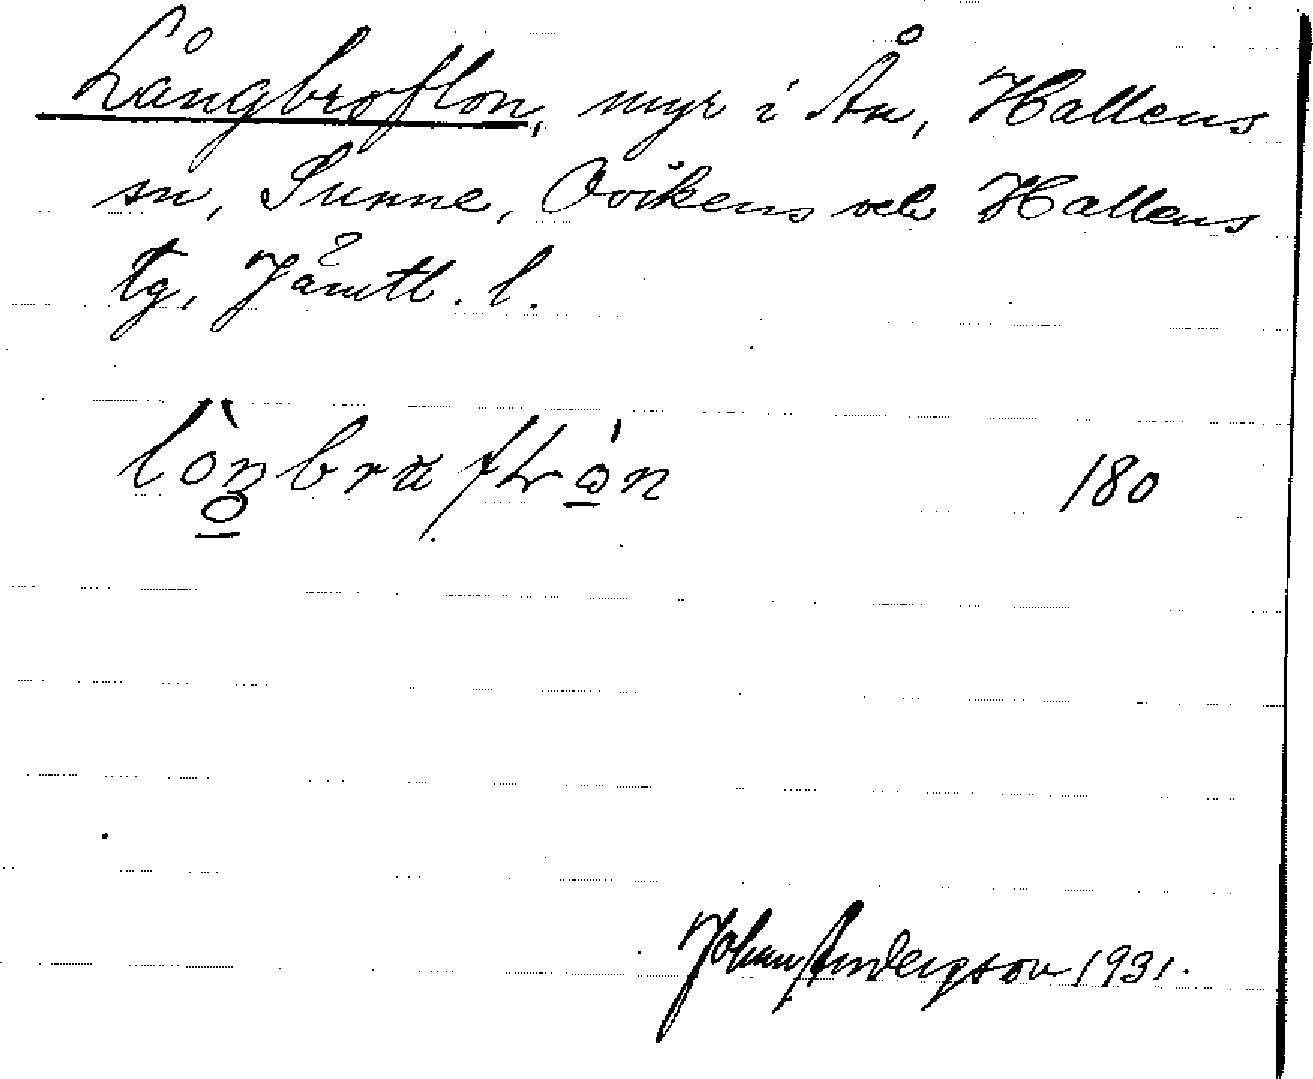 Långbroflon, myr i Ån, Hallens
sn, Sunne, Ovikens och Hallens
tg, Jämtl. l.
180
Johan Anderson 1931.